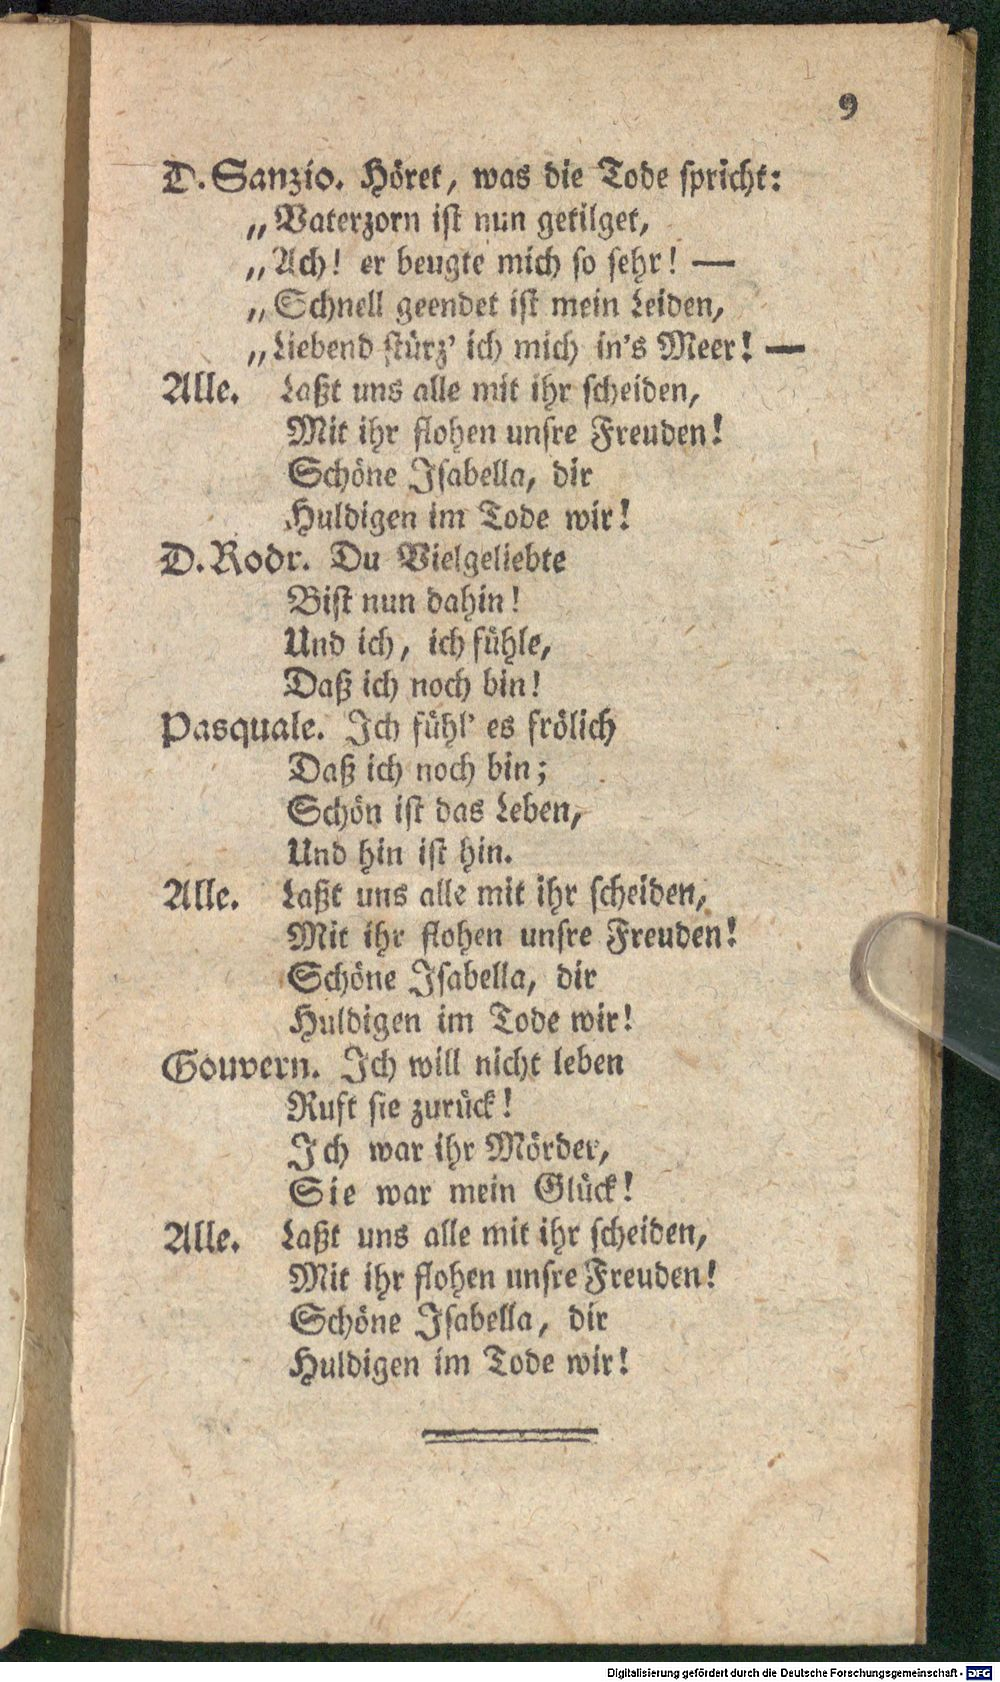 9
D. Sanzio. Höret, was die Tode spricht:
„Vaterzorn ist nun getilget,
„Ach! er beugte mich so sehr! —
„Schnell geendet ist mein Leiden,
„Liebend stürz' ich mich in's Meer! —
Alle. Laßt uns alle mit ihr scheiden,
Mit ihr flohen unsre Freuden!
Schöne Isabella, dir
Huldigen im Tode wir!
D. Rodr. Du Vielgeliebte
Bist nun dahin!
Und ich, ich fühle,
Daß ich noch bin!
Pasquale. Ich fühl' es frölich
Daß ich noch bin;
Schön ist das Leben,
Und hin ist hin.
Alle. Laßt uns alle mit ihr scheiden,
Mit ihr flohen unsre Freuden!
Schöne Isabella, dir
Huldigen im Tode wir!
Gouvern. Ich will nicht leben
Ruft sie zurück!
Ich war ihr Mörder,
Sie war mein Glück!
Alle. Laßt uns alle mit ihr scheiden,
Mit ihr flohen unsre Freuden!
Schöne Isabella, dir
Huldigen im Tode wir!
Digitalisierung gefördert durch die Deutsche Forschungsgemeinschaft - DFG